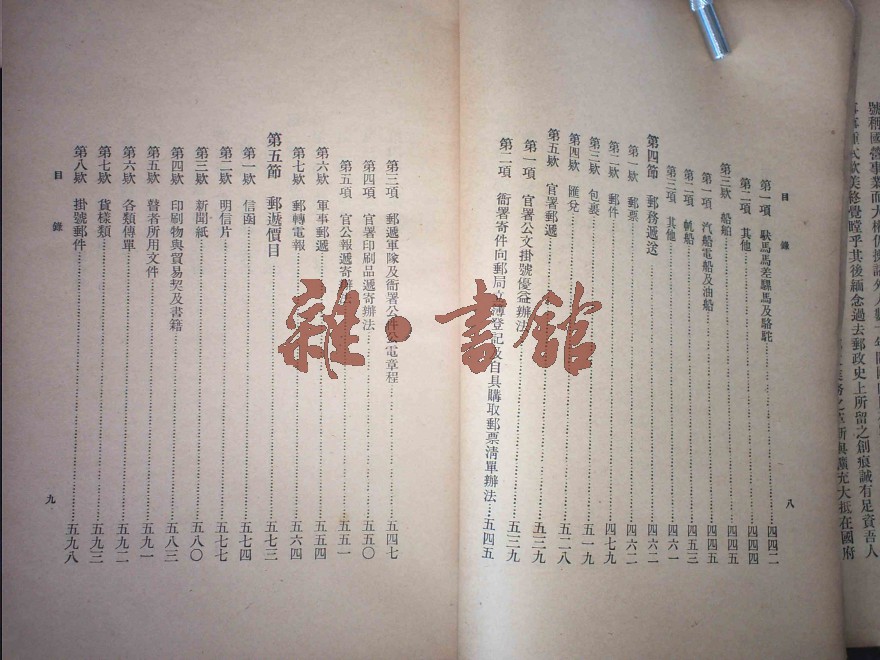 號稱國營事業而大權仍操諸外人
歐美終覺瞠乎其後緬念過去郵政史上所留之創痕誠有足資吾人
之革新與擴充大抵在國府
目錄
八
第一項 馱馬馬差騾馬及駱駝……四四二
第二項 其他……四四四
第三欵 船舶……四四五
第一項 汽船電船及油船……四四五
第二項 帆船……四五三
第三項 其他……四六二
第四節 郵務遞送……四六二
第一欵 郵票……四六二
第二欵 郵件……四七九
第三欵 包裹……五一九
第四欵 匯兌……五二八
第五欵 官署郵遞……五三九
第一項 官署公文掛號優益辦法……五三九
第二項 衙署寄件向郵局立簿登記及自具購取郵票清單辦法…五四五
第三項 郵遞軍隊及衙署公件公電章程……五四七
第四項 官署印刷品遞寄辦法……五五〇
第五項 官公報遞寄辦法……五五一
第六欵 軍事郵遞……五五四
第七欵 郵轉電報……五六四
第五節 郵遞價目……五七三
第一欵 信函……五七四
第二欵 明信片……五七七
第三欵 新聞紙……五八〇
第四欵 印刷物與貿易契及書籍……五八三
第五欵 瞽者所用文件……五九一
第六欵 各類傳單……五九二
第七欵 貨樣類……五九三
第八欵 掛號郵件……五九八
目錄
九
雜·書館